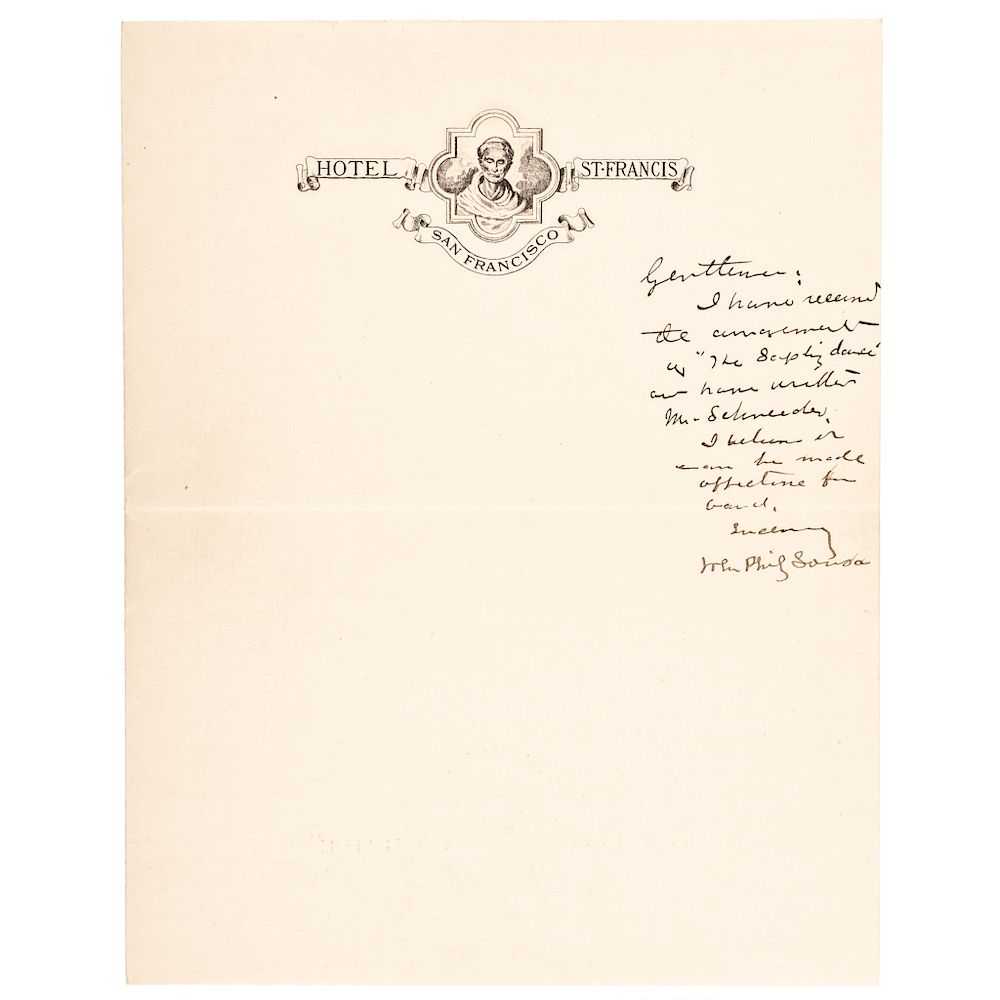 HOTEL ST·FRANCIS
SAN FRANCISCO
Gentlemen:
I have received
the arrangement
of "The dance"
and have written
Mr. Schneider.
I believe it
can be made
effective for
band.
Sincerely
John Philip Sousa